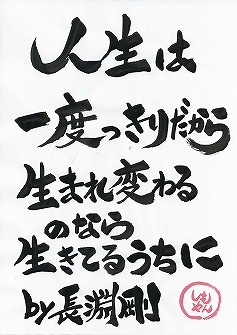 人生は
一度っきりだから
生まれ変わる
のなら
生きてるうちに
by長淵剛
しもやん